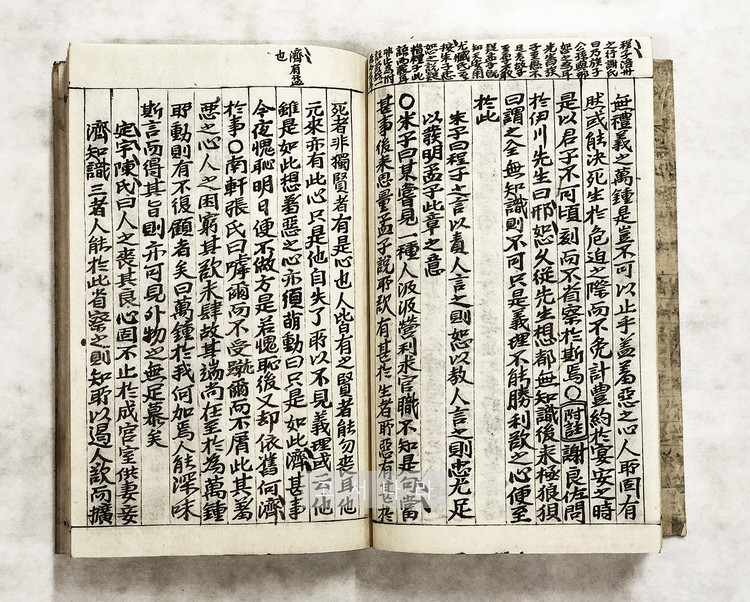 無禮義之萬鍾是豈不可以止乎盖羞惡之心人所固有
然或能決死生於危迫之際而不免計豊約於宴安之時
是以君子不可頃刻而不省察於斯焉〇附註謝良佐問
於伊川先生曰邢恕久從先生想都無知識後來極狼狽
曰謂之全無知識則不可只是義理不能勝利欲之心便至
於此
朱子曰程子之言以責人言之則恕以教人言之則忠尤足
以發明孟子此章之意
〇朱子曰某嘗見一種人汲汲營利求官職不知是勾當
甚事後來思量孟子說所欲有甚於生者所惡有甚於
死者非獨賢者有是心也人皆有之賢者能勿喪耳他
元來亦有此心只是他自失了所以不見義理或云他
雖是如此想羞惡之心亦須萌動曰只是如此濟甚事
今夜愧恥明日便不做方是若愧恥後又却依舊何濟
於事〇南軒張氏曰嘑爾而不受蹴爾而不屑此其羞
惡之心人之困窮其欲未肆故其端尚在至於為萬鍾
所動則有不復顧者矣曰萬鍾於我何加焉人能深味
斯言而得其旨則亦可見外物之無足慕矣
定宇陳氏曰人之喪其良心固不止於成宮室供妻妾
濟知識三者人能於此省察之則知所以遏人欲而擴
濟有益
也